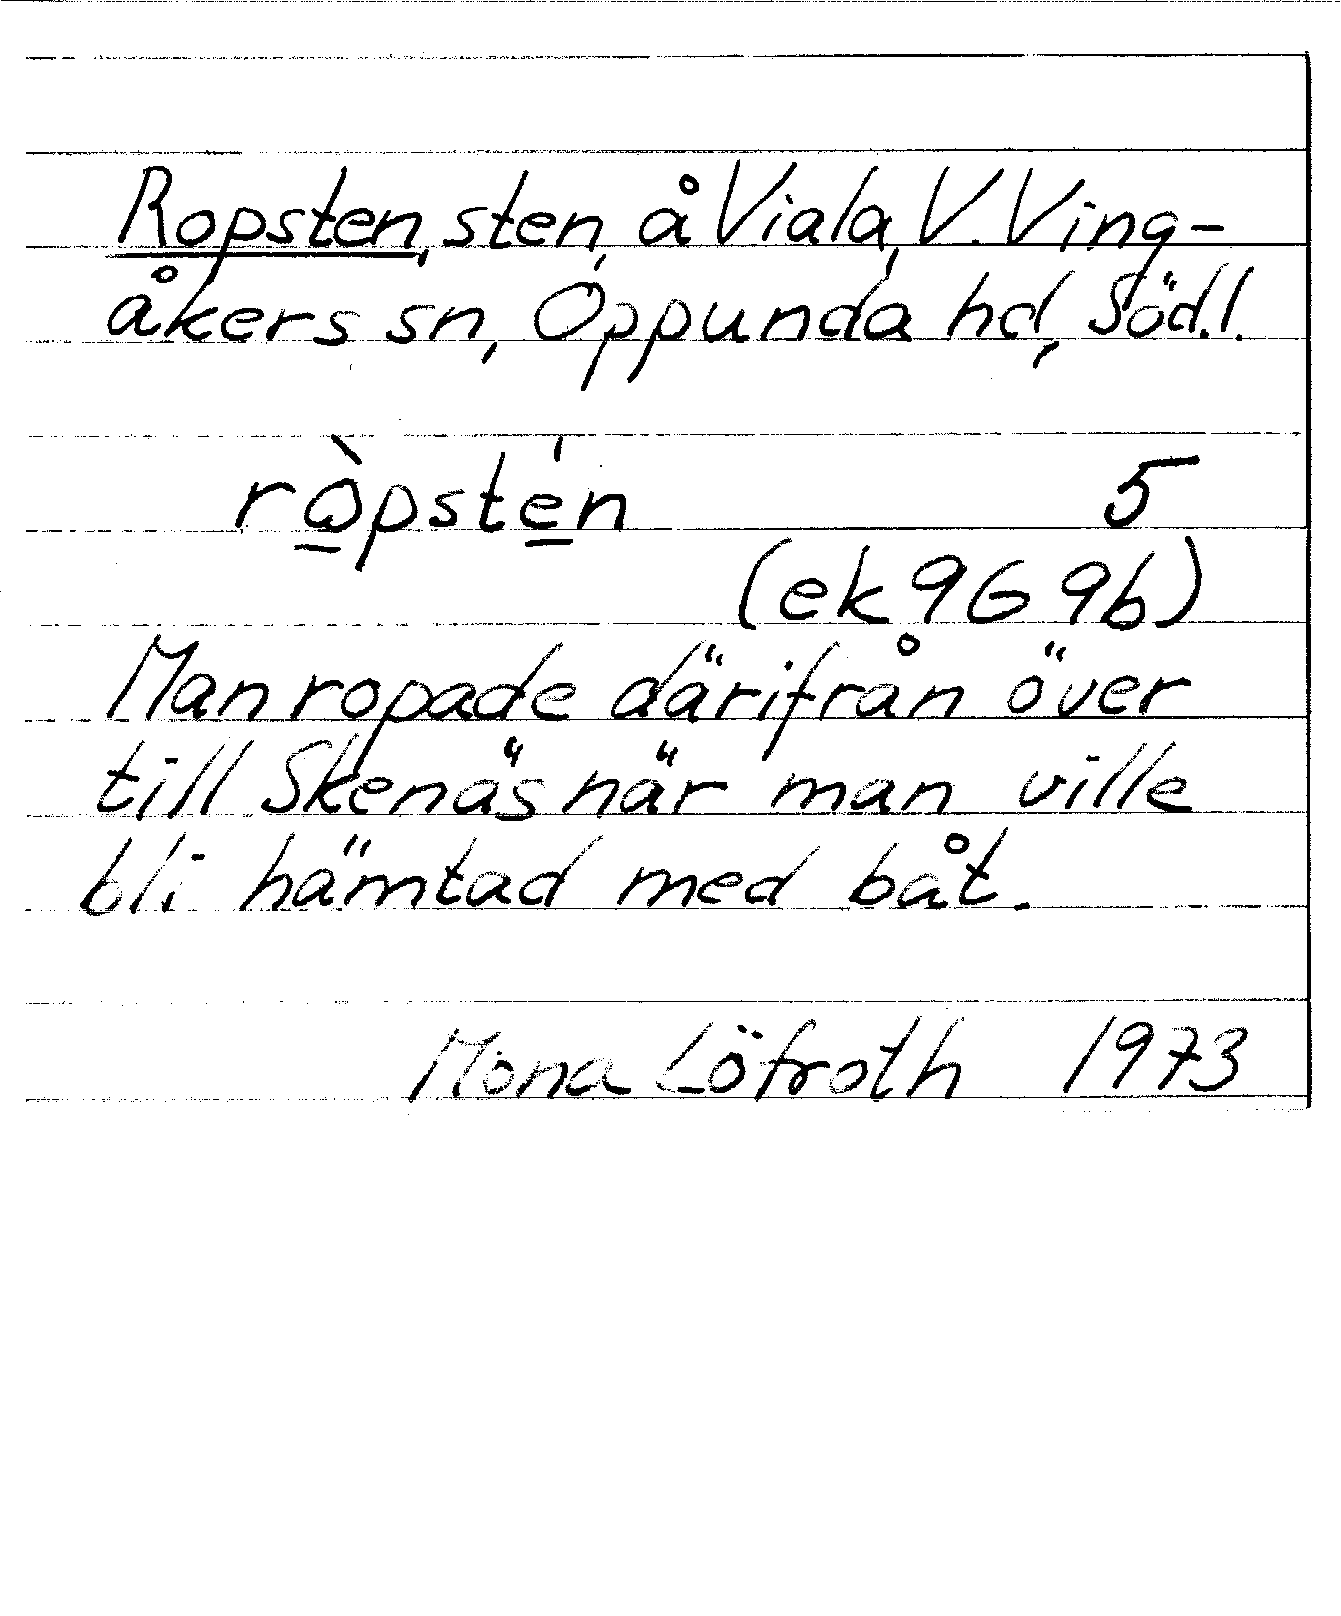 Ropsten, sten, å Viala, V. Ving-
åkers sn, Oppunda hd, Söd.l.
rò̱psté̱n 5
(ek 9G 9b)
Man ropade därifrån över
till Skenäs när man ville
bli hämtad med båt.
Mona Löfroth 1973